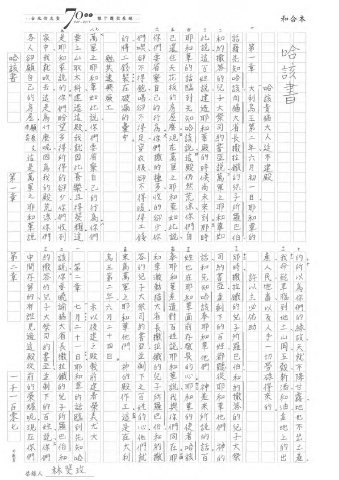 和合本
70
哈該書
哈該責猶大人遲不建殿
第一章 大利烏王第二年六月初一日耶和華的
話藉先知哈該向猶大省長撒拉鐵的兒子所羅巴伯
和約撒答的兒子大祭司約書亞說萬軍之耶和華如
此說這百姓說建造耶和華殿的時候尚未來到那時
耶和華的話臨到先知哈該說這殿仍然荒涼你們自
己還住天花板的房屋麼現在萬軍之耶和華如此說
你們要省察自己的行為你們撒的種多收的卻少你
們吃卻不得飽喝卻不得足穿衣服卻不得暖得工錢
的將工錢裝在破漏的囊中
勉民建興厥工
萬軍之耶和華如此說你們要省察自己的行為你們
要上山取木料建造這殿我就因此喜樂且得榮耀這
是耶和華說的你們盼望多得所得的卻少你們收到
家中我就吹去這是為甚麼呢因為我的殿荒涼你們
各人卻顧自己的房屋這是萬軍之耶和華說
的所以為你們的緣故天就不降甘露地也不出土產
我命乾旱臨到地上山岡五穀新酒和油並地上的出
產人民牲畜以及人手一切勞碌得來的
許以主必佑助
那時撒拉鐵的兒子所羅巴伯和約撒答的兒子大祭
司約書亞並剩下的百姓都聽從耶和華他們神的
話和先知哈該奉耶和華他們神差來所說的話百
姓也在耶和華面前存敬畏的心耶和華的使者哈該
奉耶和華差遣對百姓說耶和華說我與你們同在耶
和華激動猶大省長撒拉鐵的兒子所羅巴伯和約撒
答的兒子大祭司約書亞並剩下之百姓的心他們就
來為萬軍之耶和華他們神的殿做工這是在大利
烏王第二年六月二十四日
第二章 七月二十一日耶和華的話臨到先知哈
該說你要曉諭猶大省長撒拉鐵的兒子所羅巴伯和
約撒答的兒子大祭司約書亞並剩下的百姓說你們
中間存留的有誰見過這殿從前的榮耀呢現在你們
哈該書 第一章
第二章 一千一百零七
謄錄人